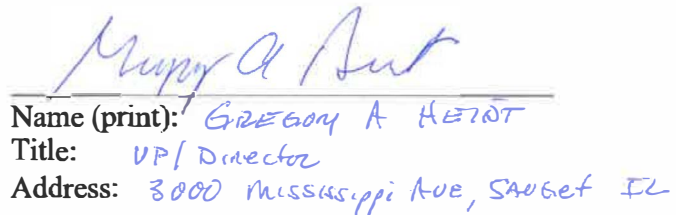 Name (print): GREGORY A HEINT
Title: VP/ Director
Address: 3000 Mississippi AVE, SAUGET IL